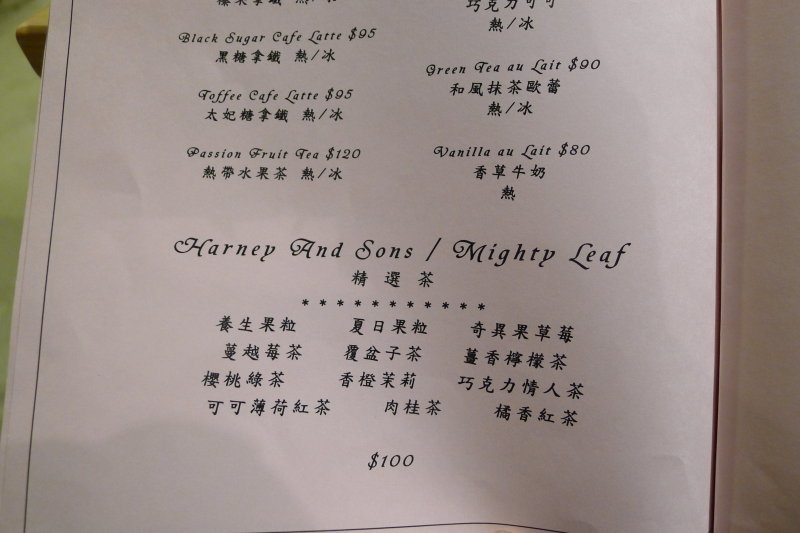 榛果拿鐵 熱/冰
Black Sugar Cafe Latte $95
黑糖拿鐵 熱/冰
Toffee Cafe Latte $95
太妃糖拿鐵 熱/冰
Passion Fruit Tea $120
熱帶水果茶 熱/冰
巧克力可可
熱/冰
Green Tea au Lait $90
和風抹茶歐蕾
熱/冰
Vanilla au Lait $80
香草牛奶
熱
Harney And Sons / Mighty Leaf
精選茶
* * * * * * * * * * *
養生果粒 夏日果粒 奇異果草莓
蔓越莓茶 覆盆子茶 薑香檸檬茶
櫻桃綠茶 香橙茉莉 巧克力情人茶
可可薄荷紅茶 肉桂茶 橘香紅茶
$100